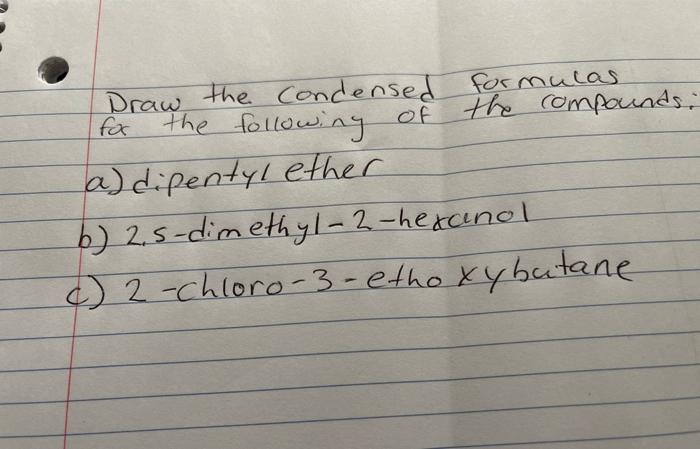 Draw the condensed formulas
for the following of the compounds:
a) dipentyl ether
b) 2,5-dimethyl-2-hexanol
c) 2-chloro-3-ethoxybutane